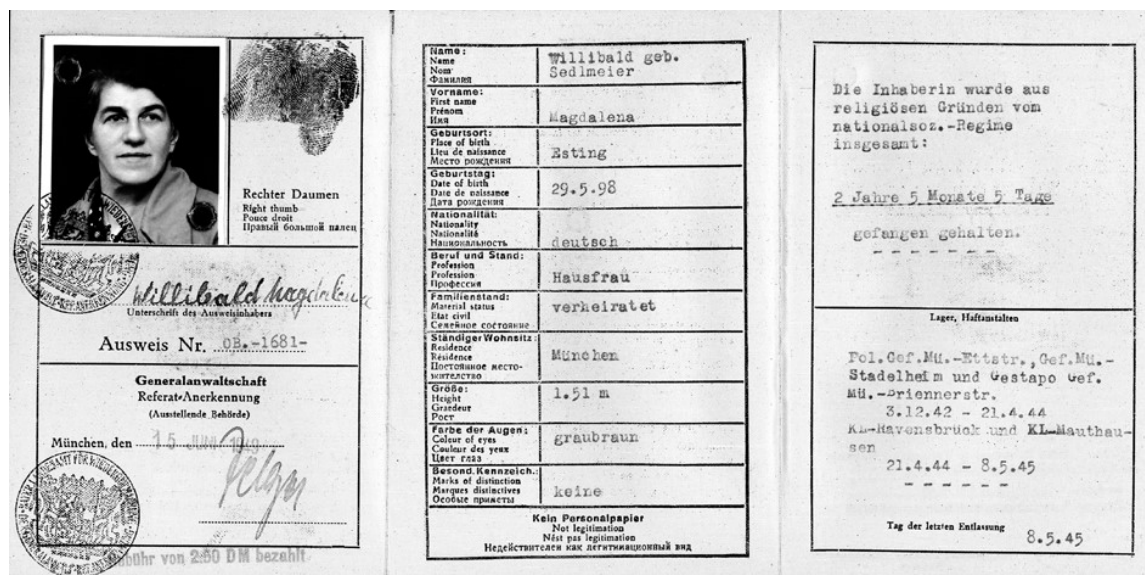 Rechter Daumen
Right thumb
Pouce droit
Правый большой палец
Willibald Magdalena
Unterschrift des Ausweisinhabers
Ausweis Nr. OB.-1681-
Generalanwaltschaft
Referat-Anerkennung
(Ausstellende Behörde)
München, den 15. JUNI 1949
bühr von 2:50 DM bezahlt
Name:
Name
Nom
Фамилия
Willibald geb.
Sedlmeier
Vorname:
First name
Prénom
Имя
Magdalena
Geburtsort:
Place of birth
Lieu de naissance
Место рождения
Esting
Geburtstag:
Date of birth
Date de naissance
Дата рождения
29.5.98
Nationalität:
Nationality
Nationalité
Национальность
deutsch
Beruf und Stand:
Profession
Profession
Профессия
Hausfrau
Familienstand:
Material status
Etat civil
Семейное состояние
verheiratet
Ständiger Wohnsitz:
Residence
Résidence
Постоянное место-
жительство
München
Größe:
Height
Grandeur
Рост
1.51 m
Farbe der Augen:
Colour of eyes
Couleur des yeux
Цвет глаз
graubraun
Besond. Kennzeich.:
Marks of distinction
Marques distinctives
Особые приметы
keine
Kein Personalpapier
Not legitimation
Nést pas legitimation
Недействителен как легитимационный вид
Die Inhaberin wurde aus
religiösen Gründen vom
nationalsoz.-Regime
insgesamt:
2 Jahre 5 Monate 5 Tage
gefangen gehalten.
Lager, Haftanstalten
Pol.Gef.Mü.-Ettstr., Gef.Mü.-
Stadelheim und Gestapo Gef.
Mü.-Briennerstr.
3.12.42 - 21.4.44
KL-Ravensbrück und KL-Mauthau-
sen
21.4.44 - 8.5.45
Tag der letzten Entlassung
8.5.45